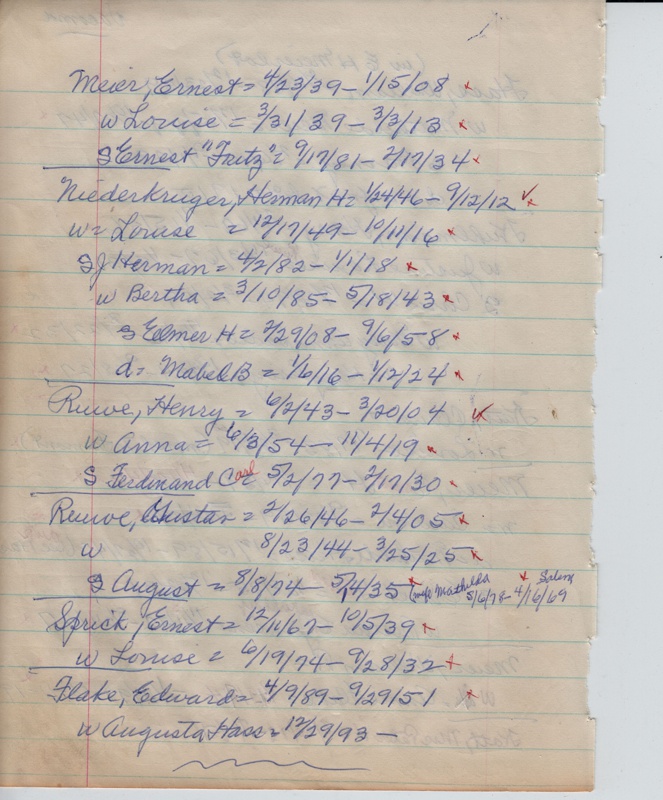 Meier, Ernest = 4/23/39 - 1/15/08 x
w Louise = 3/31/39 - 3/3/13 x
S Ernest "Fritz" = 9/17/81 - 2/17/34 x
Niederkruger, Herman H = 1/24/46 - 9/12/12 ✓ x
w = Louise = 12/17/49 - 10/11/16 x
SJ Herman = 4/2/82 - 1/1/18 x
w Bertha = 3/10/85 - 5/18/43 x
S Elmer H = 2/29/08 - 9/6/58 x
d = Mabel B = 1/6/16 - 1/12/24 x
Ruwe, Henry = 6/2/43 - 3/20/04 x
w Anna = 6/3/54 - 11/4/19 x
S Ferdinand Carl 5/2/77 - 2/17/30 x
Ruwe, Gustav = 2/26/46 - 2/4/05 x
w 8/23/44 - 3/25/25 x
S August = 8/8/74 - 5/4/35 x (wife Mathilda 5/6/78 - 4/16/69 x Salem
Sprick, Ernest = 12/11/67 - 10/5/39 x
w Louise = 6/19/74 - 9/28/32 x
Flake, Edward = 4/9/89 - 9/29/51 x
w Augusta Hass = 12/29/93 -